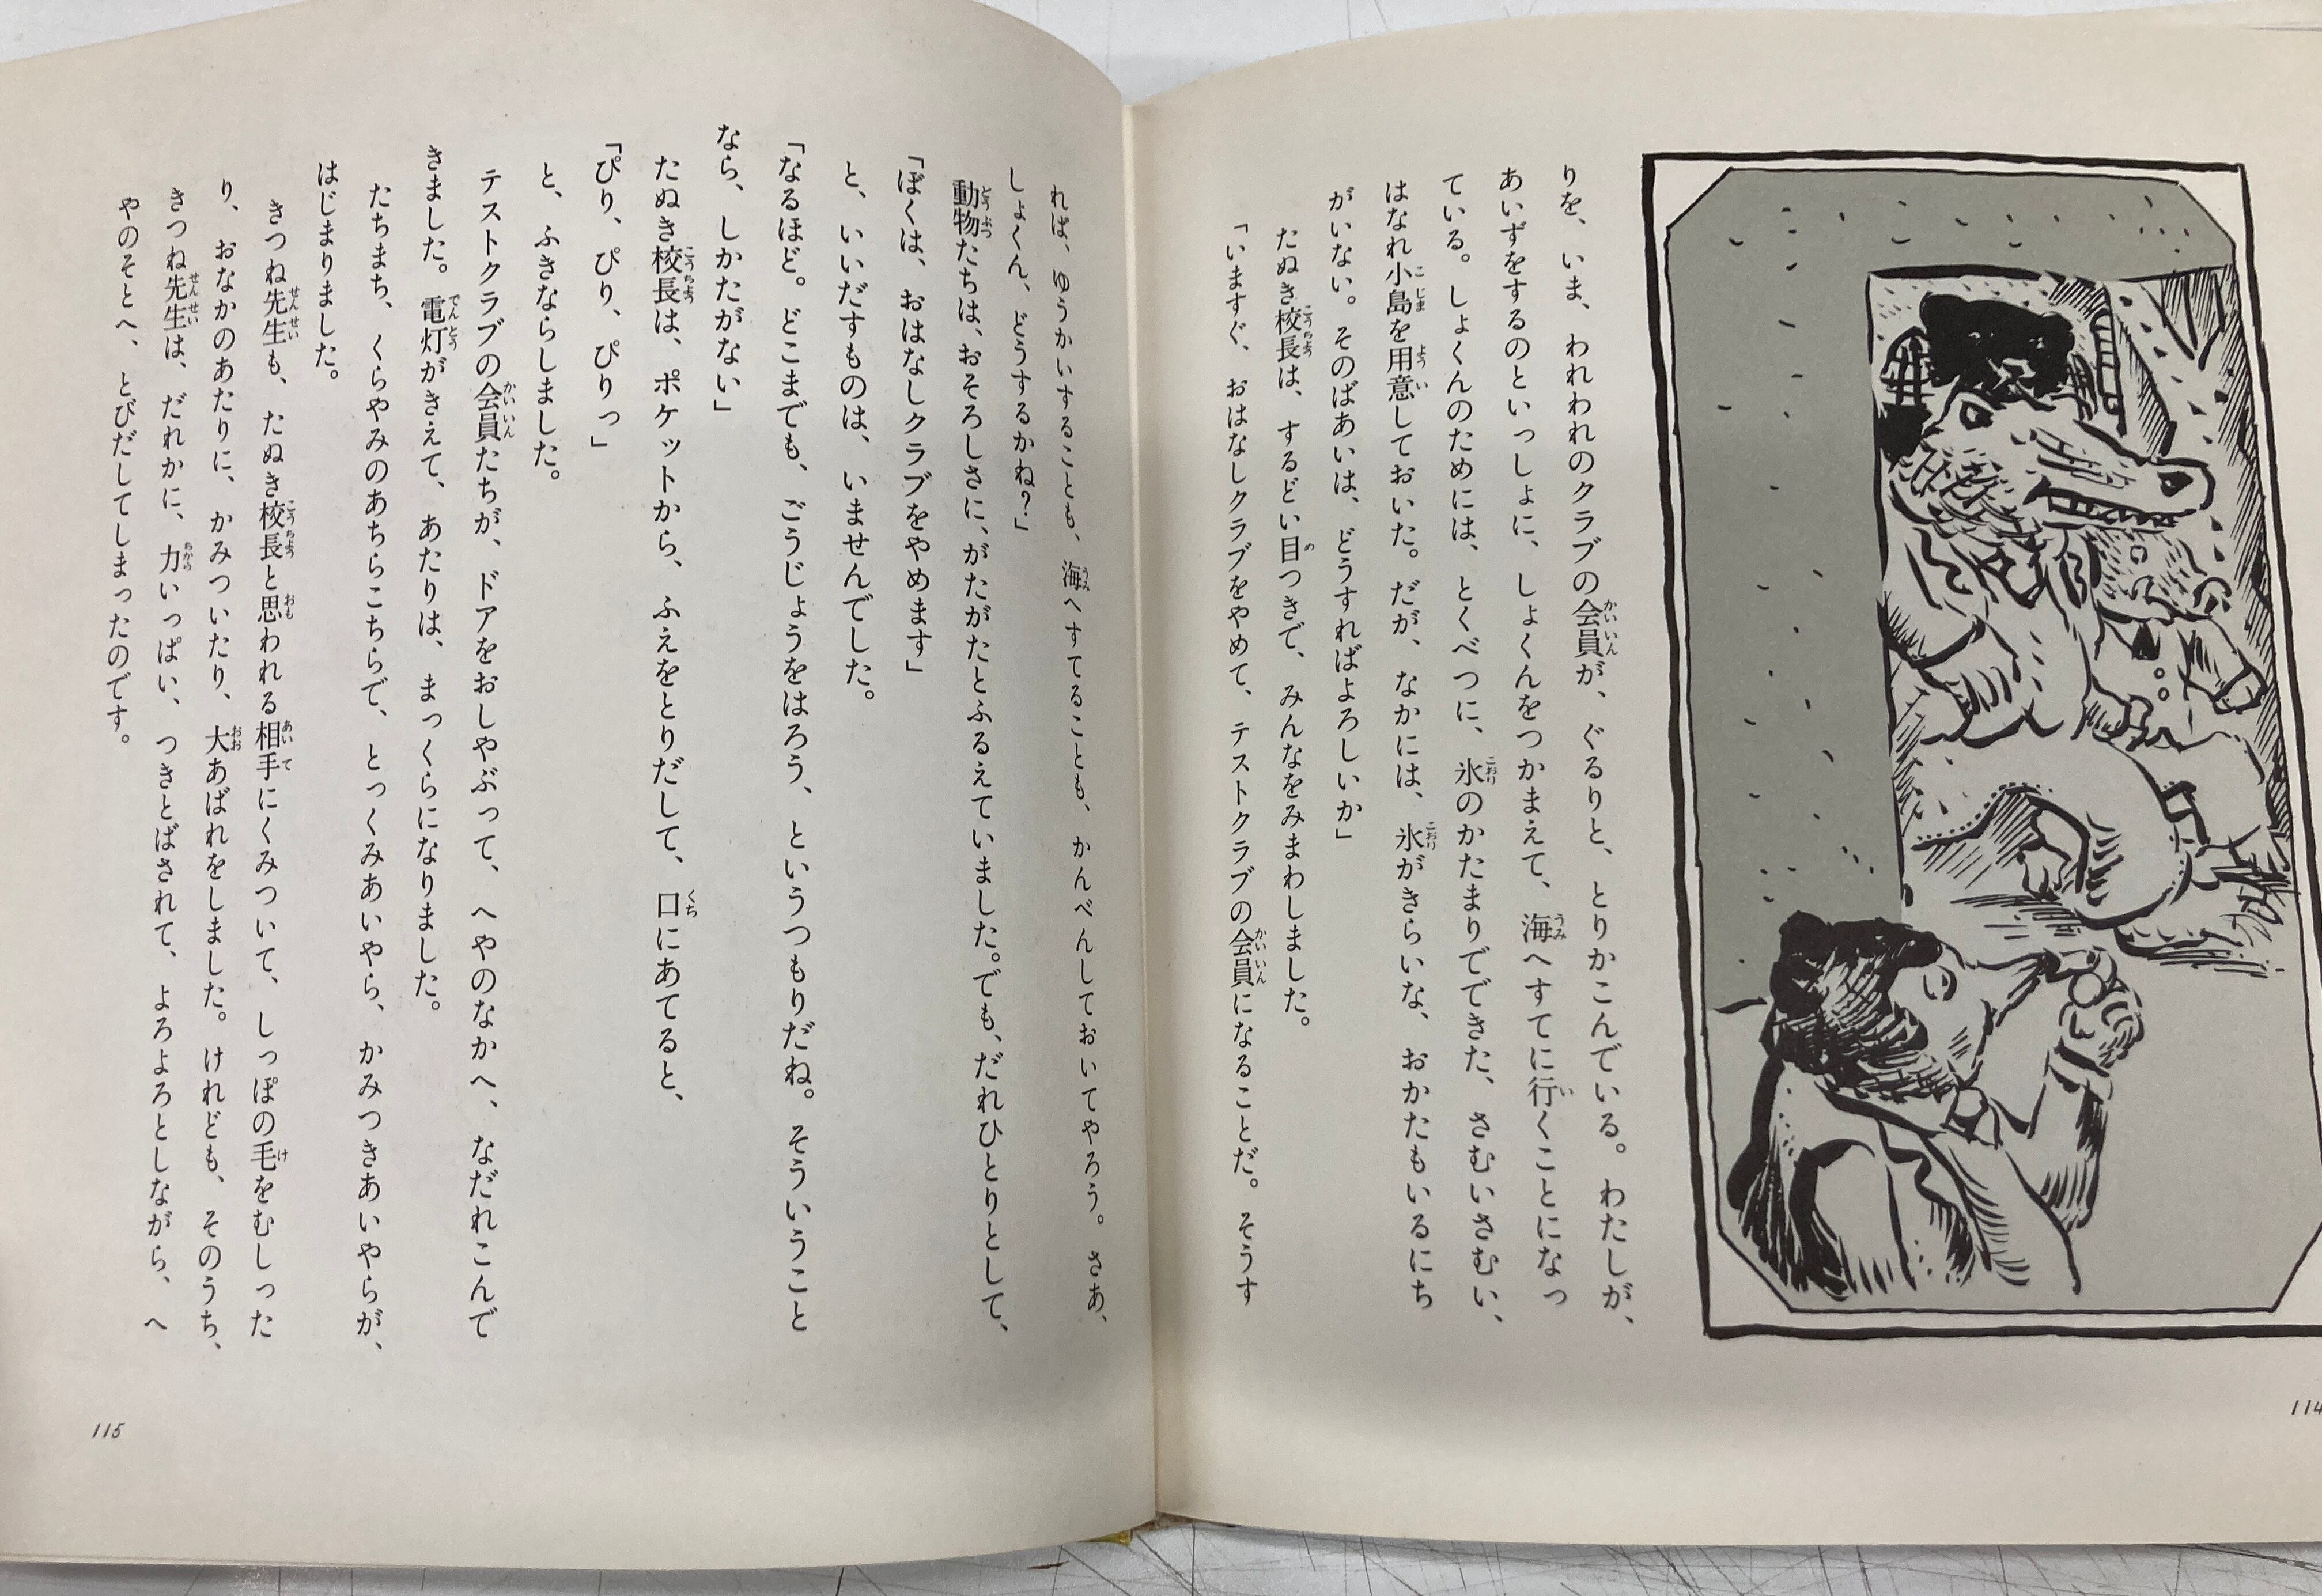 りを、いま、われわれのクラブの会員が、ぐるりと、とりかこんでいる。わたしが、
あいずをするのといっしょに、しょくんをつかまえて、海へすてに行くことになっ
ている。しょくんのためには、とくべつに、氷のかたまりでできた、さむいさむい、
はなれ小島を用意しておいた。だが、なかには、氷がきらいな、おかたもいるにち
がいない。そのばあいは、どうすればよろしいか」
たぬき校長は、するどい目つきで、みんなをみまわしました。
「いますぐ、おはなしクラブをやめて、テストクラブの会員になることだ。そうす
114
れば、ゆうかいすることも、海へすてることも、かんべんしておいてやろう。さあ、
しょくん、どうするかね？」
動物たちは、おそろしさに、がたがたとふるえていました。でも、だれひとりとして、
「ぼくは、おはなしクラブをやめます」
と、いいだすものは、いませんでした。
「なるほど。どこまでも、ごうじょうをはろう、というつもりだね。そういうこと
なら、しかたがない」
たぬき校長は、ポケットから、ふえをとりだして、口にあてると、
「ぴり、ぴり、ぴりっ」
と、ふきならしました。
テストクラブの会員たちが、ドアをおしやぶって、へやのなかへ、なだれこんで
きました。電灯がきえて、あたりは、まっくらになりました。
たちまち、くらやみのあちらこちらで、とっくみあいやら、かみつきあいやらが、
はじまりました。
きつね先生も、たぬき校長と思われる相手にくみついて、しっぽの毛をむしった
り、おなかのあたりに、かみついたり、大あばれをしました。けれども、そのうち、
きつね先生は、だれかに、力いっぱい、つきとばされて、よろよろとしながら、へ
やのそとへ、とびだしてしまったのです。
115